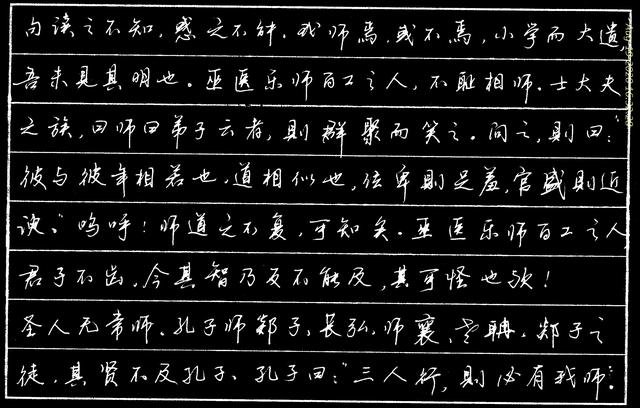 句读之不知，惑之不解，或师焉，或不焉，小学而大遗，
吾未见其明也。巫医乐师百工之人，不耻相师。士大夫
之族，曰师曰弟子云者，则群聚而笑之。问之，则曰：“
彼与彼年相若也，道相似也，位卑则足羞，官盛则近
谀。”呜呼！师道之不复，可知矣。巫医乐师百工之人
君子不齿，今其智乃反不能及，其可怪也欤！
圣人无常师。孔子师郯子、苌弘、师襄、老聃。郯子之
徒，其贤不及孔子。孔子曰：“三人行，则必有我师。”